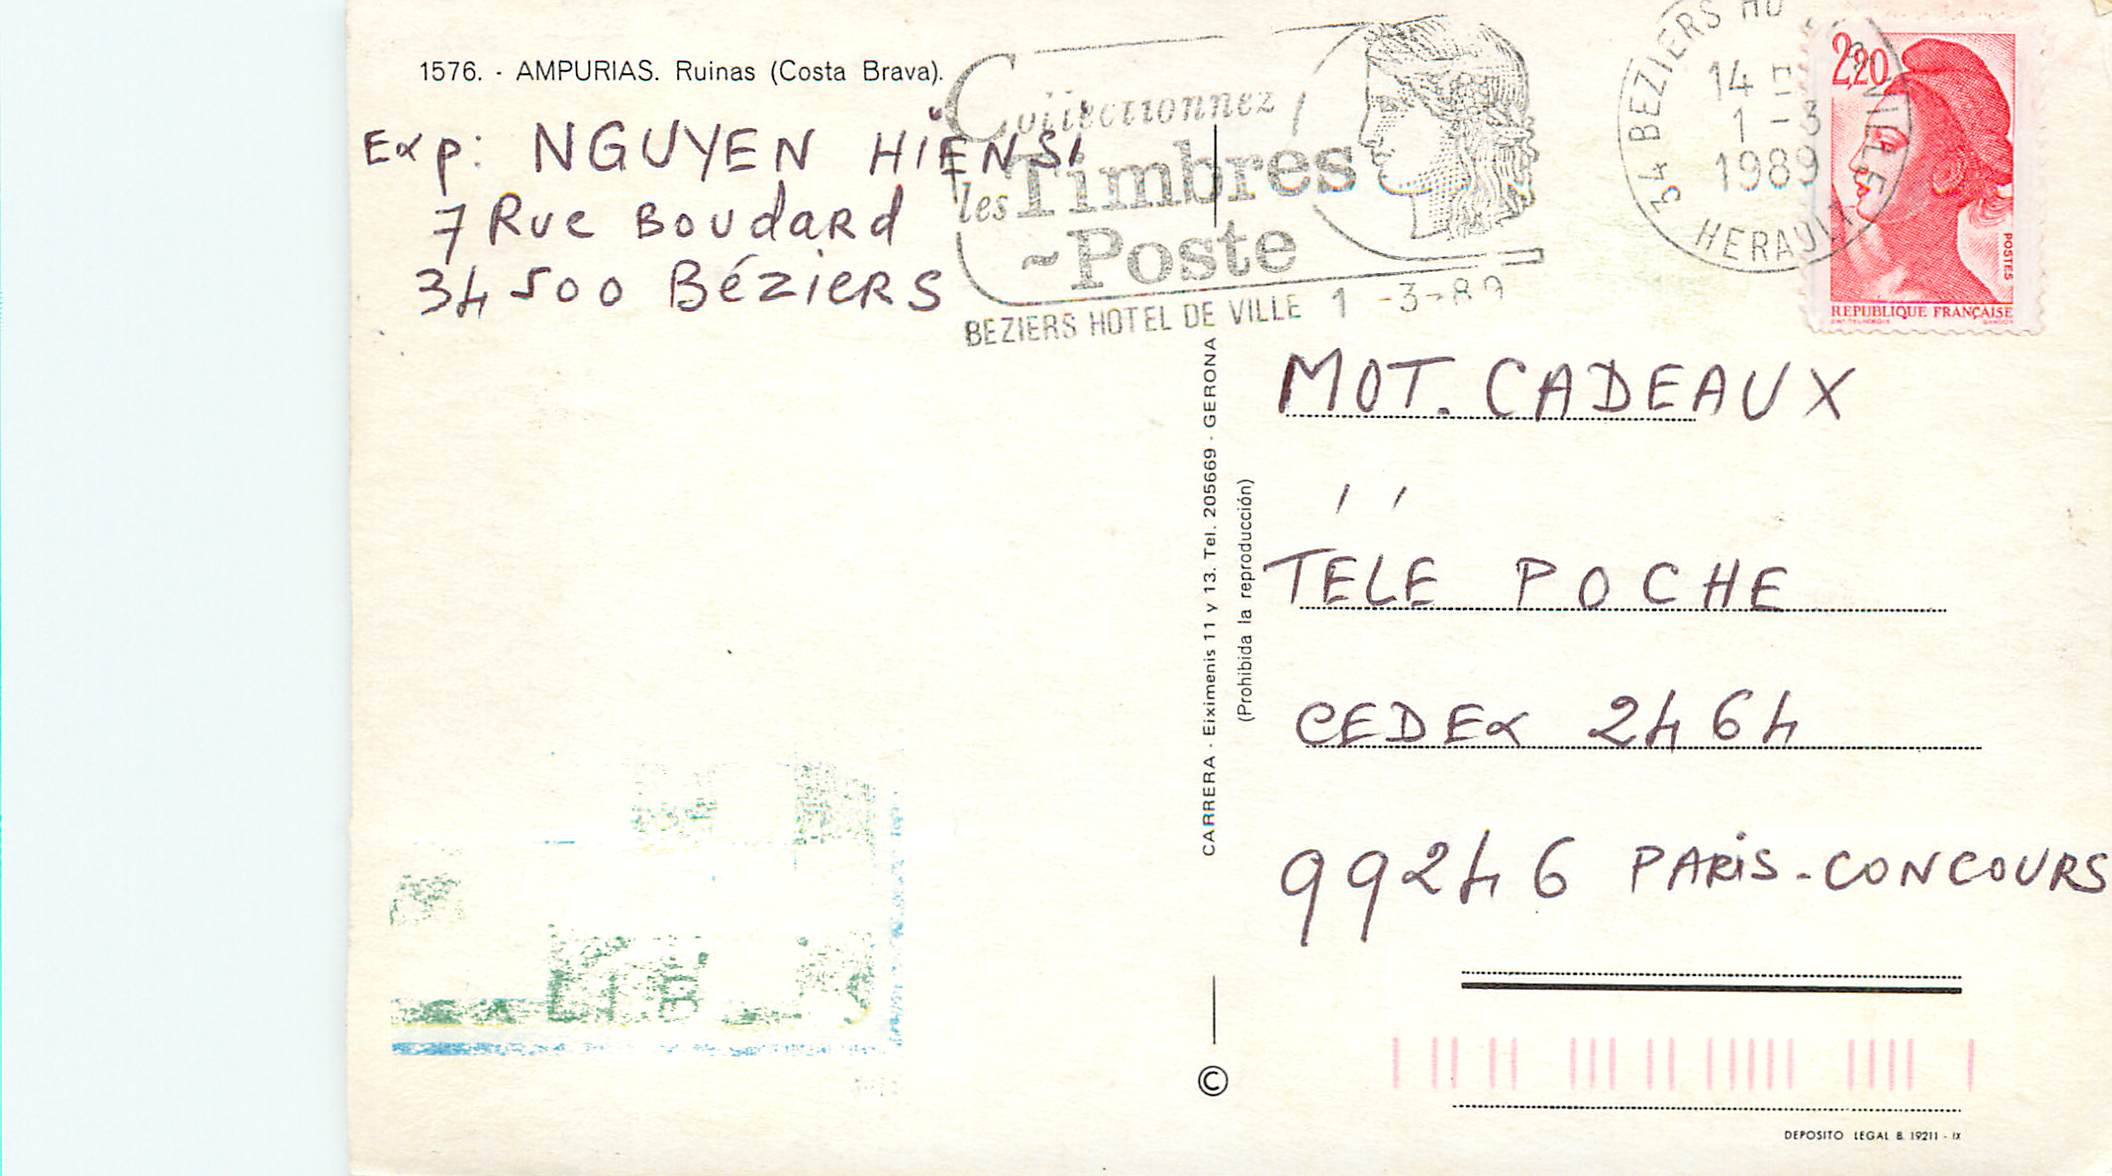 1576. - AMPURIAS. Ruinas (Costa Brava).
Exp: NGUYEN HIENSI
7 Rue Boudard
34500 Béziers
Collectionnez
les Timbres
~Poste
BEZIERS HOTEL DE VILLE 1 -3-89
34 BEZIERS HOTEL DE VILLE
14 H
1 -3
1989
HERAULT
2,20
POSTES
REPUBLIQUE FRANÇAISE
MOT. CADEAUX
TÉLÉ POCHE
CEDEX 2464
99246 PARIS-CONCOURS
CARRERA - Eiximenis 11 y 13. Tel. 205669 - GERONA
(Prohibida la reproducción)
©
DEPOSITO LEGAL B. 19211 - IX